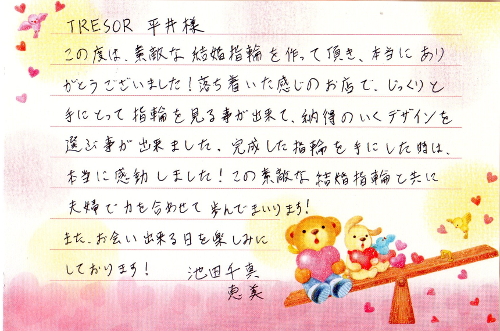 TRESOR 平井様
この度は、素敵な結婚指輪を作って頂き、本当にあり
がとうございました！落ち着いた感じのお店で、じっくりと
手にとって指輪を見る事が出来て、納得のいくデザインを
選ぶ事が出来ました。完成した指輪を手にした時は、
本当に感動しました！この素敵な結婚指輪と共に
夫婦で力を合わせて歩んでまいります！
また、お会い出来る日を楽しみに
しております！ 池田千真
恵美